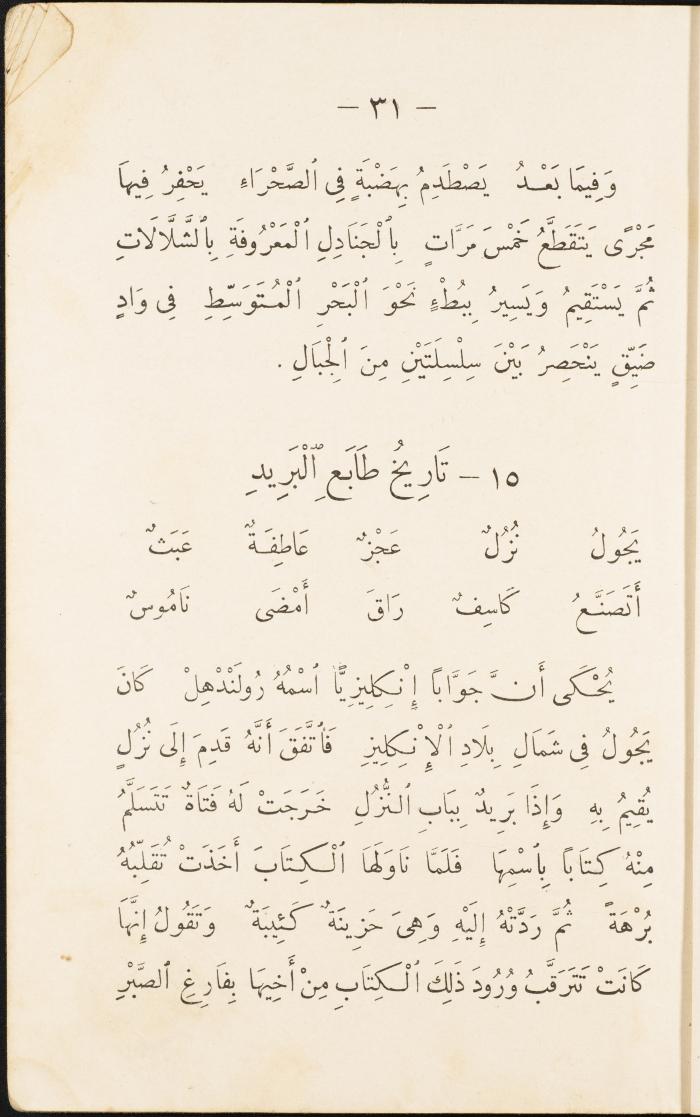 – ٣١ –
وَفِيمَا بَعْدُ يَصْطَدِمُ بِهَضْبَةٍ فِي ٱلصَّحْرَاءِ يَحْفِرُ فِيهَا
مَجْرًى يَتَقَطَّعُ خَمْسَ مَرَّاتٍ بِٱلْجَنَادِلِ ٱلْمَعْرُوفَةِ بِٱلشَّلَّالَاتِ
ثُمَّ يَسْتَقِيمُ وَيَسِيرُ بِبُطْءٍ نَحْوَ ٱلْبَحْرِ ٱلْمُتَوَسِّطِ فِي وَادٍ
ضَيِّقٍ يَنْحَصِرُ بَيْنَ سِلْسِلَتَيْنِ مِنَ ٱلْجِبَالِ .
١٥ – تَارِيخُ طَابَعِ ٱلْبَرِيدِ
يَجُولُ نُزُلٌ عَجْزٌ عَاطِفَةٌ عَبَثٌ
أَتَصَنَّعُ كَاسِفٌ رَاقَ أَمْضَى نَامُوسٌ
يُحْكَى أَنَّ جَوَّابًا إِنْكِلِيزِيًّا ٱسْمُهُ رُولَنْدْهِلْ كَانَ
يَجُولُ فِي شَمَالِ بِلَادِ ٱلْإِنْكِلِيزِ فَٱتَّفَقَ أَنَّهُ قَدِمَ إِلَى نُزُلٍ
يُقِيمُ بِهِ وَإِذَا بَرِيدٌ بِبَابِ ٱلنُّزُلِ خَرَجَتْ لَهُ فَتَاةٌ تَتَسَلَّمُ
مِنْهُ كِتَابًا بِٱسْمِهَا فَلَمَّا نَاوَلَهَا ٱلْكِتَابَ أَخَذَتْ تُقَلِّبُهُ
بُرْهَةً ثُمَّ رَدَّتْهُ إِلَيْهِ وَهِىَ حَزِينَةٌ كَئِيبَةٌ وَتَقُولُ إِنَّهَا
كَانَتْ تَتَرَقَّبُ وُرُودَ ذَلِكَ ٱلْكِتَابِ مِنْ أَخِيهَا بِفَارِغِ ٱلصَّبْرِ